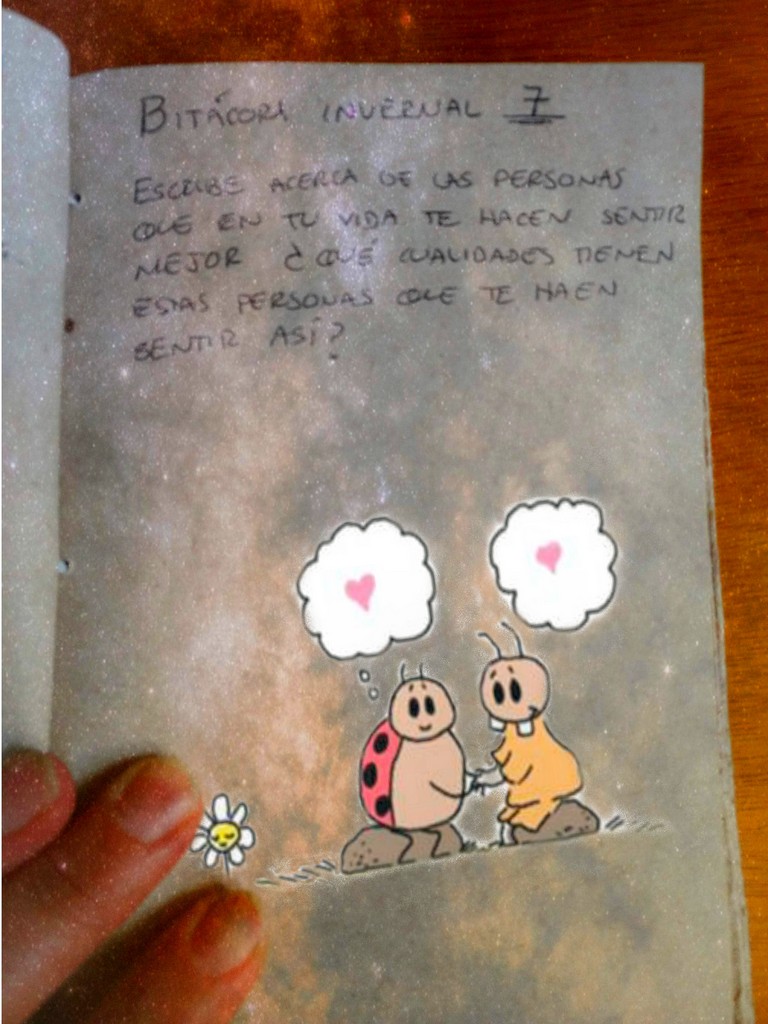 BITÁCORA INVERNAL 7
ESCRIBE ACERCA DE LAS PERSONAS
QUE EN TU VIDA TE HACEN SENTIR
MEJOR ¿QUÉ CUALIDADES TIENEN
ESTAS PERSONAS QUE TE HAEN
SENTIR ASÍ?